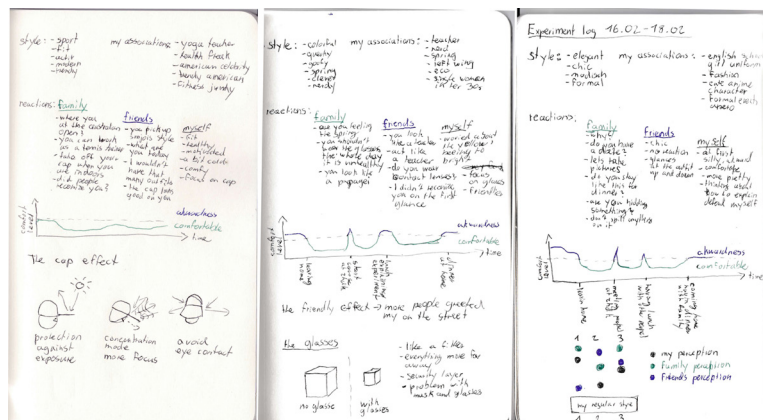 style: - sport
- fit
- activ
- modern
- trendy
my associations - yoga teacher
- health freak
- american celebrity
- trendy american
- fitness junky
reactions: family
- where you
at the
open?
- you can work
as a tennis
- take off your
cap when you
are indoors
- did people
recognize you?
friends
- you pick up
simple style
- what are
you today
- I wouldn't
have that
many outfits
- the cap looks
good on you
myself
- fit
- healthy
- motivated
- a bit
- comfy
- focus on cap
comfort
level
awkwardness
comfortable
time
The cap effect
protection
against
exposure
concentration
mode
more focus
avoid
eye contact
style: - colorful
- quirky
- goofy
- spring
- clever
- nerdy
my associations: - teacher
- nerd
- spring
- left wing
- eco
- single women
in her 30s
reactions:
family
- are you feeling
the spring
- you shouldn't
wear the glasses
the whole day
it is unhealthy
- you look like
a
friends
- you look
like a teacher
- act like
a teacher
- do you wear
contact lenses?
- I didn't recognize
you on the first
glance
myself
- worried about
the weather
- feeling to
bright
- focus
on glasses
- friendly
comfort
level
awkwardness
comfortable
time
leaving
home
lunch
explaining
experiment
dinner
at home
the friendly effect → more people greeted
my on the street
the glasses
no glasses
with
glasses
- like a filter
- everything more far
away
- security layer
- problem with
mask and glasses
Experiment log 16.02-18.02
Style: - elegant
- chic
- modish
- formal
my associations: - english school
girl uniform
- fashion
- cute anime
character
- formal event
reactions:
family
- chic
- do you have
a date?
- lets take
pictures
- do you stay
like this for
dinner?
- are you hiding
something?
- don't spill anything
on it
friends
- chic
- no reaction
- glances
at the outfit
up and down
myself
- at first
silly,
- comfortable
- more pretty
- thinking about
how to explain
defend myself
comfort
level
awkwardness
comfortable
time
leavin home
meeting
at zhdk
having lunch
with
coming home
having dinner
with family
1 2 3
my perception
Family perception
Friends perception
my regular style
1 2 3